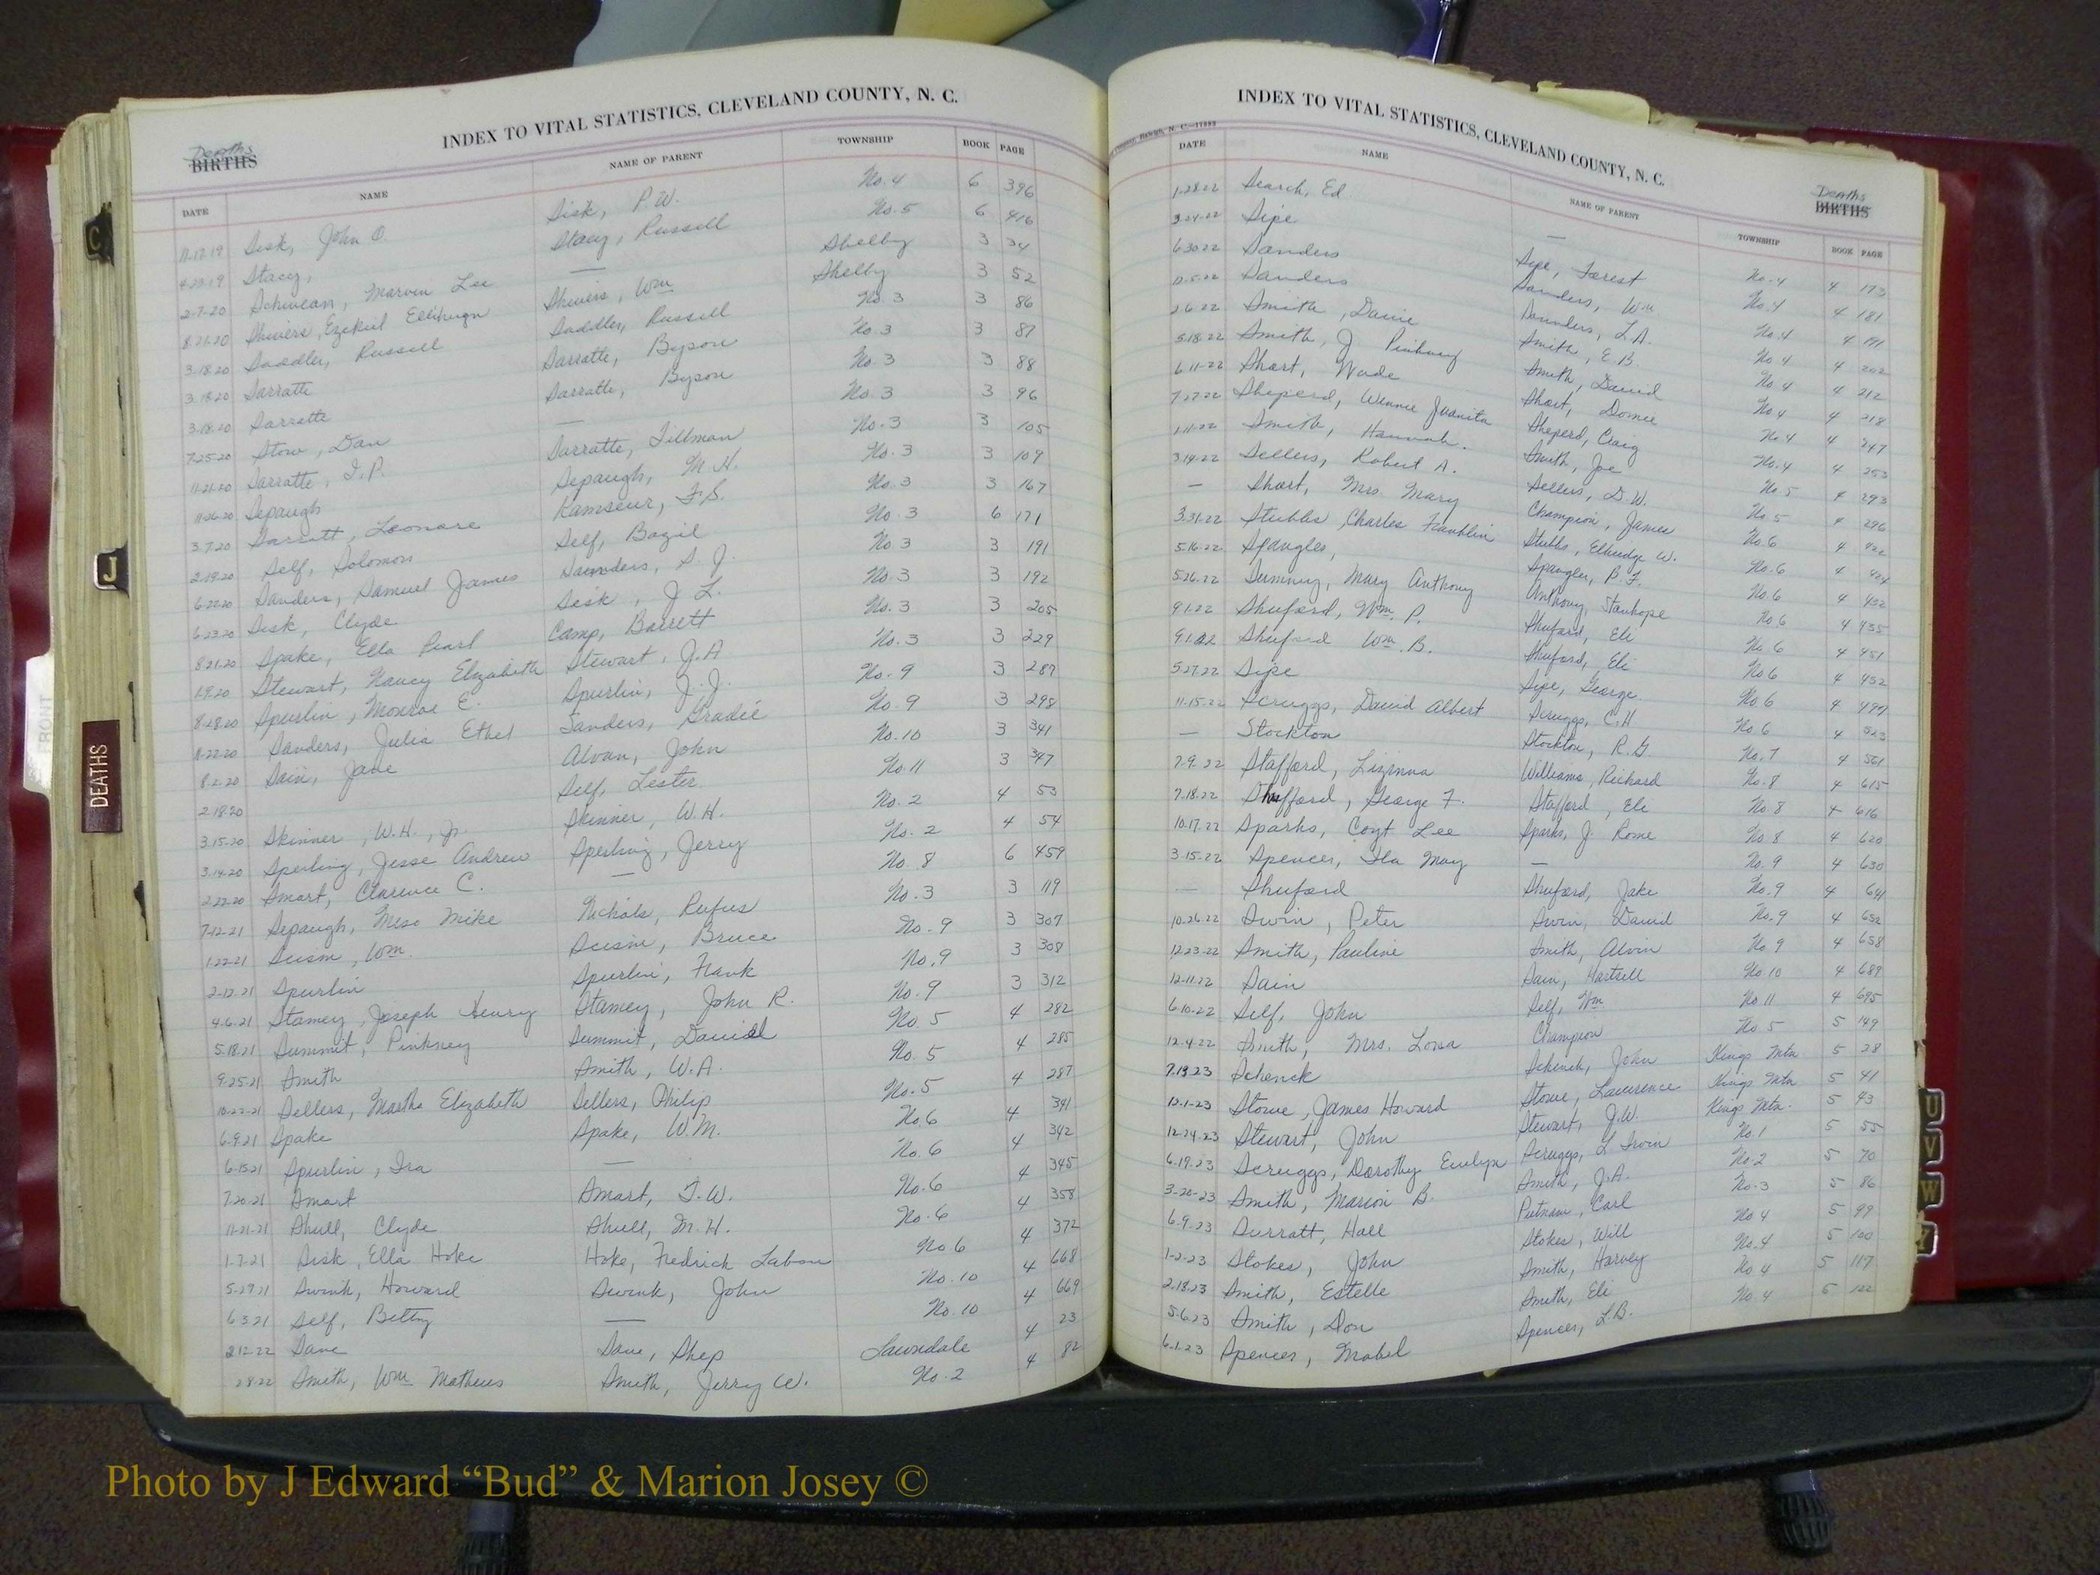 INDEX TO VITAL STATISTICS, CLEVELAND COUNTY, N. C.
Deaths
BIRTHS
DATE NAME NAME OF PARENT TOWNSHIP BOOK PAGE
11-17-19 Sisk, John O. Sisk, P.W. No. 4 6 396
4-23-19 Stacy, Stacy, Russell No. 5 6 416
2-7-20 Marvin Lee — Shelby 3 34
8-21-20 Shivers, Ezekiel Shivers, Wm Shelby 3 52
3-18-20 Saddler, Russell Saddler, Russell No. 3 3 86
3-18-20 Sarratte Sarratte, Byson No. 3 3 87
3-18-20 Sarratte Sarratte, Byson No. 3 3 88
7-25-20 Stow, Dan — No. 3 3 96
11-21-20 Sarratte, I.P. Sarratte, Tillman No. 3 3 105
11-26-20 Sepaugh Sepaugh, M.H. No. 3 3 109
3-7-20 Sarratt, Leonare Ramseur, F.S. No. 3 3 167
2-19-20 Self, Solomon Self, Bazil No. 3 6 171
6-22-20 Sanders, Samuel James Saunders, S.J. No 3 3 191
6-23-20 Sisk, Clyde Sisk, J.L. No. 3 3 192
8-21-20 Spake, Ella Pearl Camp, Barrett No. 3 3 205
1-9-20 Stewart, Nancy Elizabeth Stewart, J.A No. 3 3 229
8-28-20 Spurlin, Monroe E. Spurlin, J.J. No. 9 3 287
11-22-20 Sanders, Julia Ethel Sanders, Gradie No. 9 3 298
8-2-20 Sain, Jane Alvan, John No. 10 3 341
2-18-20 Self, Lester No. 11 3 347
3-15-20 Skinner, W.H., Jr. Skinner, W.H. No. 2 4 53
3-14-20 Sperling, Jesse Andrew Sperling, Jerry No. 2 4 54
2-22-20 Smart, Clarence C. — No. 8 6 459
7-12-21 Sepaugh, Miss Mike Nichols, Rufus No. 3 3 119
1-22-21 Seism, Wm. Seism, Bruce No. 9 3 307
2-12-21 Spurlin Spurlin, Frank No. 9 3 308
4-6-21 Stamey, Joseph Henry Stamey, John R. No. 9 3 312
5-18-21 Summit, Pinkney Summit, David No. 5 4 282
9-25-21 Smith Smith, W.A. No. 5 4 285
10-22-21 Sellers, Martha Elizabeth Sellers, Philip No. 5 4 287
6-9-21 Spake Spake, W.M. No 6 4 341
6-15-21 Spurlin, Ira — No. 6 4 342
7-20-21 Smart Smart, T.W. No. 6 4 345
11-21-21 Shull, Clyde Shull, M.H. No. 6 4 358
1-7-21 Sisk, Ella Hoke Hoke, Fredrick Laban No 6 4 372
5-29-21 Swink, Howard Swink, John No. 10 4 668
6-3-21 Self, Betty — No. 10 4 669
2-12-22 Dave Dave, Shep Lawndale 4 23
2-8-22 Smith, Wm Mathews Smith, Jerry W. No. 2 4 82
INDEX TO VITAL STATISTICS, CLEVELAND COUNTY, N. C.
Deaths
BIRTHS
DATE NAME NAME OF PARENT TOWNSHIP BOOK PAGE
1-28-22 Search, Ed — No. 4 4 173
3-24-22 Sipe Sipe, Forest No. 4 4 181
6-30-22 Sanders Sanders, Wm No. 4 4 191
12-5-22 Sanders Saunders, L.A. No 4 4 202
2-6-22 Smith, Davie Smith, E.B. No 4 4 212
5-18-22 Smith, J Pinkney Smith, David No 4 4 218
6-11-22 Short, Wade Short, Domie No 4 4 247
7-27-22 Sheperd, Winnie Juanita Sheperd, Craig No. 4 4 253
1-11-22 Smith, Hannah. Smith, Joe No 5 4 293
3-14-22 Sellers, Robert A. Sellers, D.W. No 5 4 296
— Short, Mrs. Mary Champion, James No 6 4 422
3-31-22 Stubbs, Charles Franklin Stubbs, W. No. 6 4 424
5-16-22 Spangler, Spangler, B.F. No. 6 4 432
5-26-22 Summey, Mary Anthony Anthony, Stanhope No 6 4 435
9-1-22 Shuford, Wm. P. Shuford, Eli No 6 4 451
9-1-22 Shuford Wm. B. Shuford, Eli No 6 4 452
5-27-22 Sipe Sipe, George No 6 4 497
11-15-22 Scruggs, David Albert Scruggs, C.H No 6 4 523
— Stockton Stockton, R.G. No. 7 4 561
7-9-22 Stafford, Lizinna Williams, Richard No. 8 4 615
7-18-22 Shufford, George F. Stafford, Eli No. 8 4 616
10-17-22 Sparks, Coyt Lee Sparks, J. Rome No 8 4 620
3-15-22 Spencer, Ila May — No. 9 4 630
— Shuford Shuford, Jake No. 9 4 641
10-26-22 Swin, Peter Swin, David No. 9 4 652
12-23-22 Smith, Pauline Smith, Alvin No. 9 4 658
12-11-22 Sain Sain, Hartsell No. 10 4 689
6-10-22 Self, John Self, Wm No. 11 4 695
12-4-22 Smith, Mrs. Lona Champion No. 5 5 149
7-19-23 Schenck Schenck, John Kings Mtn. 5 28
12-1-23 Stowe, James Howard Stowe, Lawrence Kings Mtn 5 41
12-24-23 Stewart, John Stewart, J.W. Kings Mtn. 5 43
6-19-23 Scruggs, Dorothy Evelyn Scruggs, L Irvin No. 1 5 55
3-20-23 Smith, Marion B. Smith, J.A. No. 2 5 70
6-9-23 Surratt, Hall Putnam, Carl No. 3 5 86
1-2-23 Stokes, John Stokes, Will No 4 5 99
2-18-23 Smith, Estelle Smith, Harvey No. 4 5 100
5-6-23 Smith, Don Smith, Eli No 4 5 117
6-1-23 Spencer, Mabel Spencer, L.B. No. 4 5 122
C
J
DEATHS
U
V
W
Photo by J Edward “Bud” & Marion Josey ©